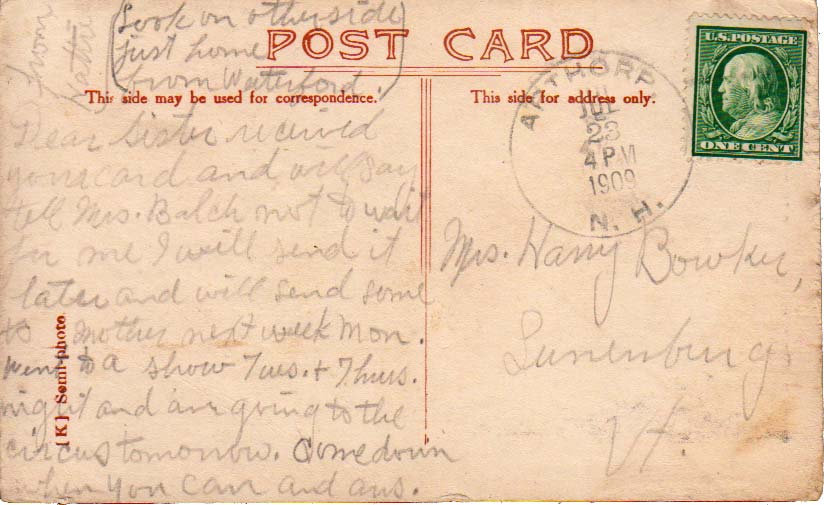 from
Hattie
(Look on otherside
just home
from Waterford.)
POST CARD
This side may be used for correspondence.
This side for address only.
U.S. POSTAGE
ONE CENT
APTHORP,
JUL
23
4 PM
1909
N. H.
Dear Sister received
your card and will say
tell Mrs. Balch not to wait
for me I will send it
later and will send some
to Mother next week Mon.
Went to a show Tues. + Thurs.
night and are going to the
circus tomorrow. Come down
when you can and ans.
Mrs. Harry Bowker,
Lunenburg
Vt.
[K] Semi-photo